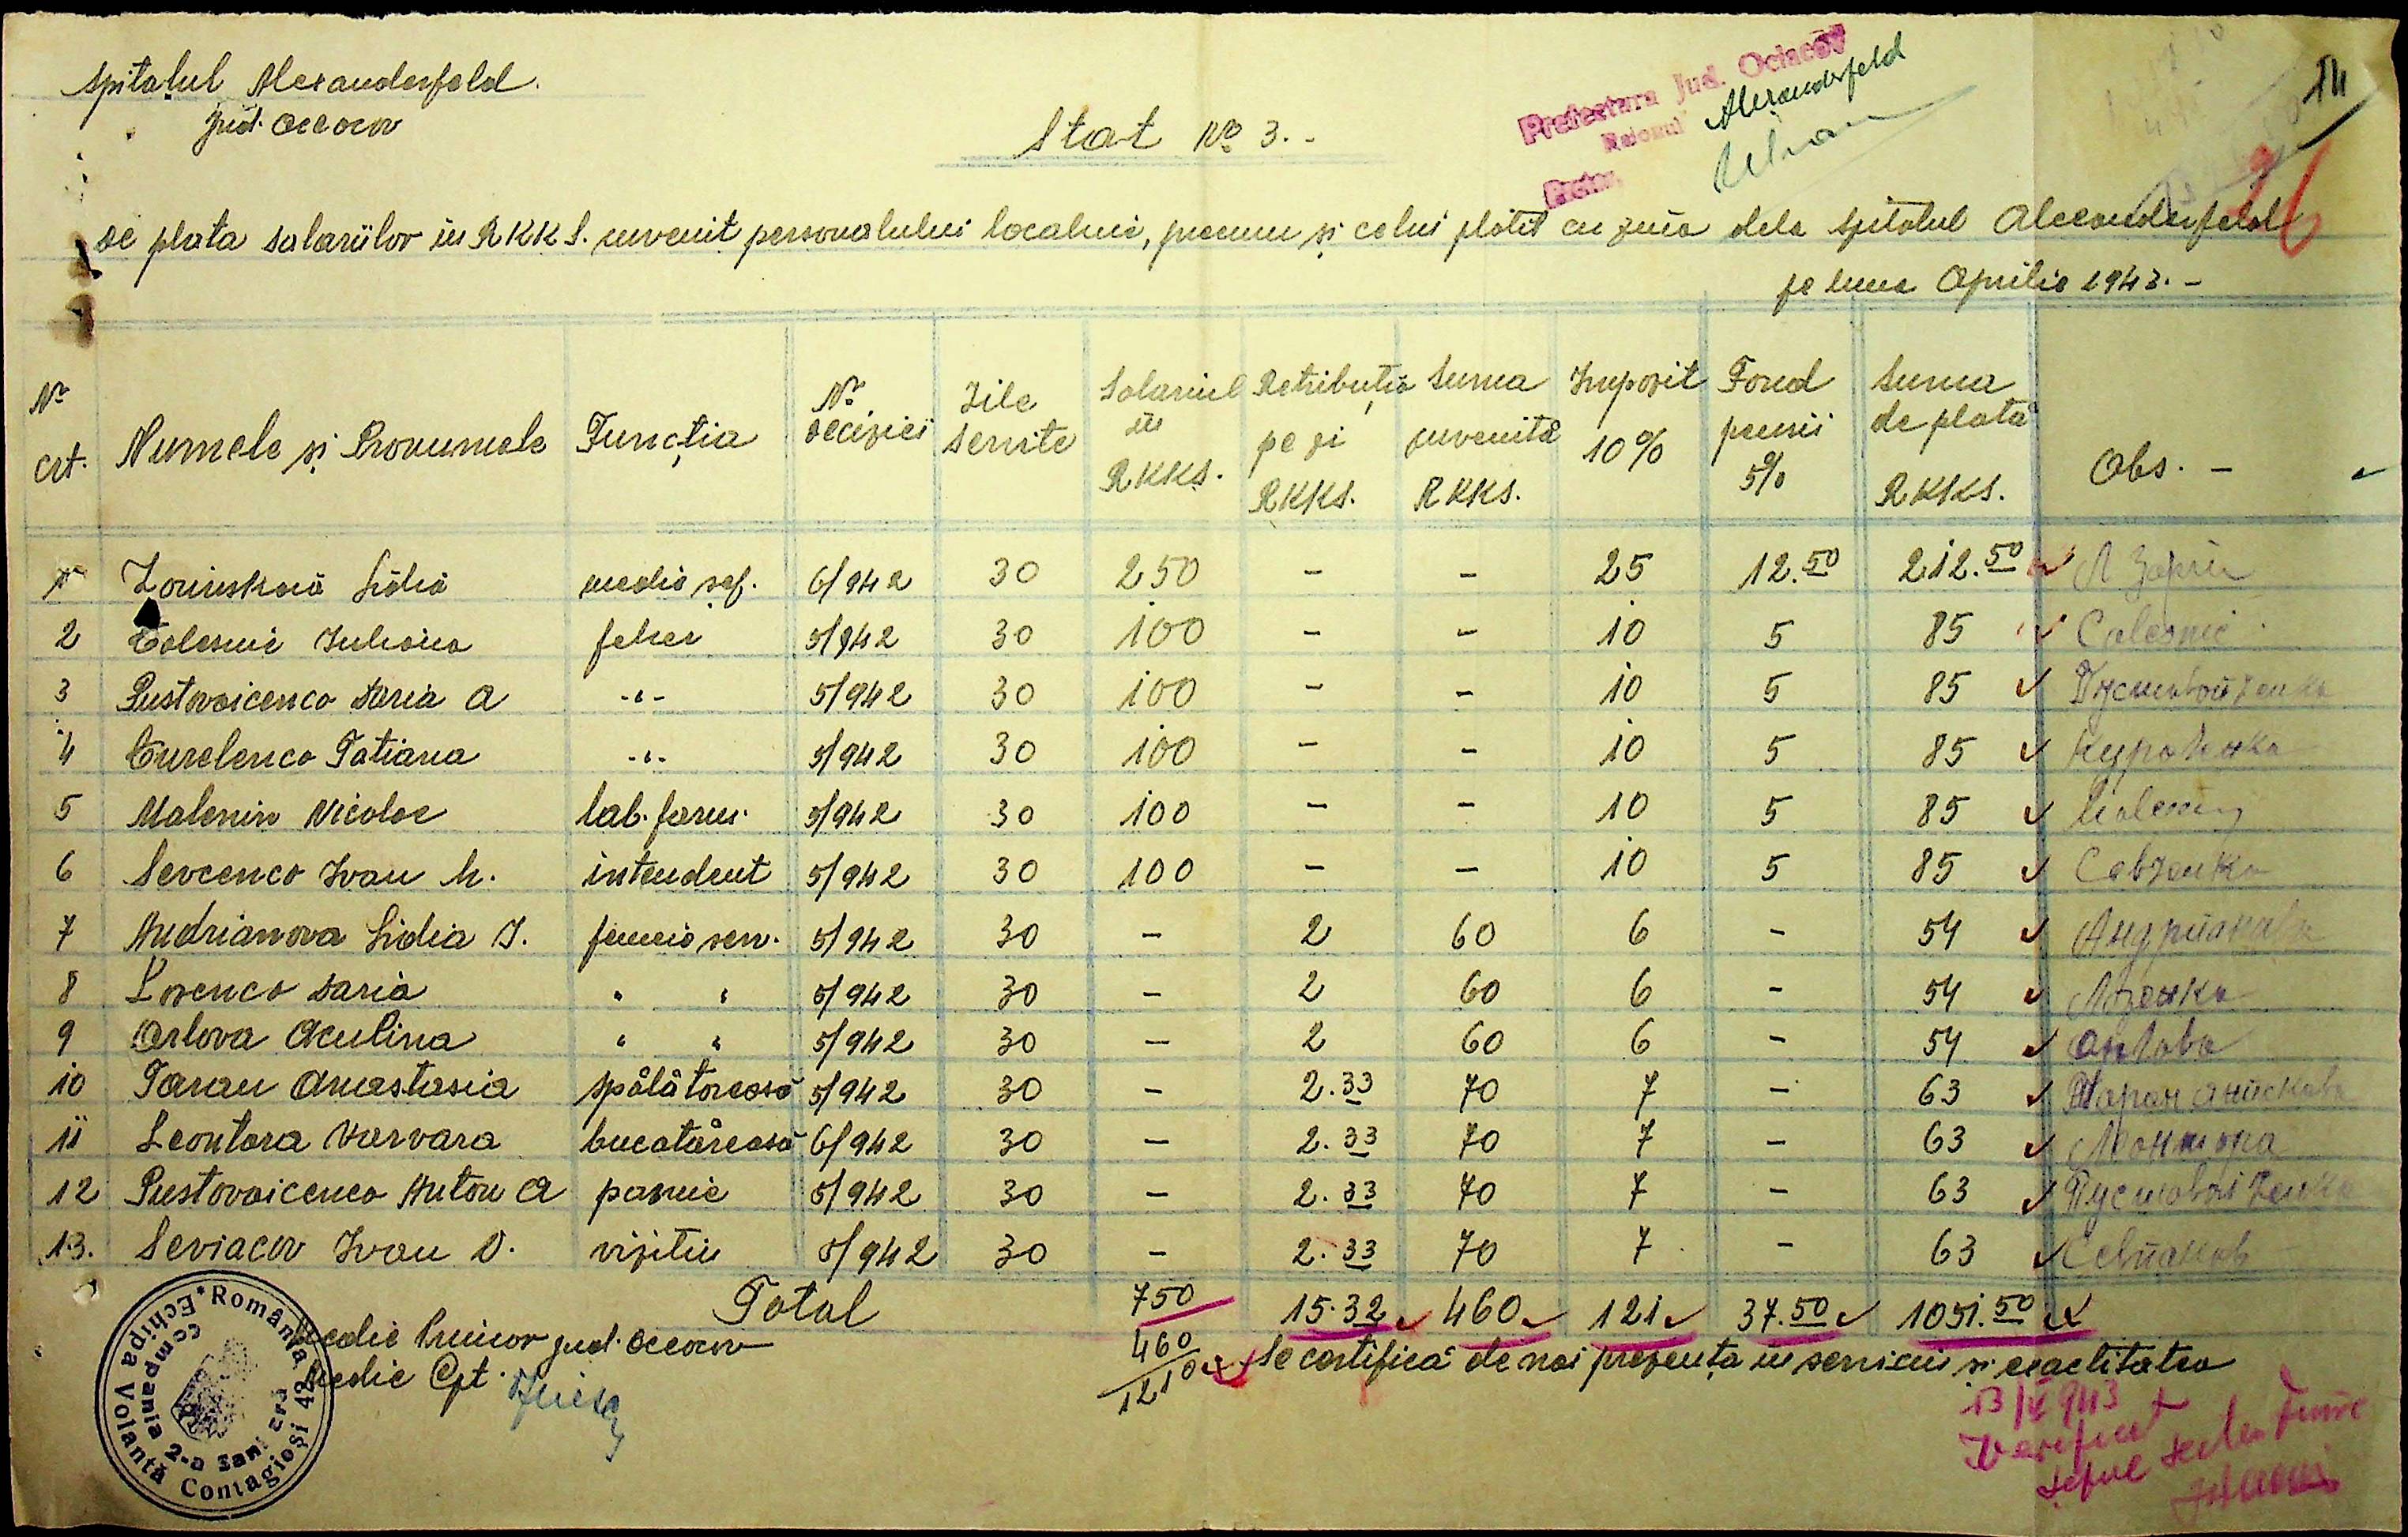 Spitalul Alexanderfeld.
Jud. Oceacov
Prefectura Jud. Ociacov
Raionul Alexanderfeld
Pretor
14
26
Stat No 3.-
de plata salariilor în RKKS. cuvenit personalului localnic, precum și celui plătit cu ziua dela spitalul Alexanderfeld
pe luna Aprilie 1943.-
Nr crt. Numele și Pronumele Funcția Nr deciziei Zile servite Salariul în RKKS. Retribuția pe zi RKKS. Suma cuvenită RKKS. Impozit 10% Fond pensii 5% Suma de plată RKKS. Obs. -
1 Lidia medic șef. 6/942 30 250 - - 25 12.50 212.50
2 Colesnic Iuliana felcer 5/942 30 100 - - 10 5 85 Colesnic
3 Pustovoicenco Daria A -"- 5/942 30 100 - - 10 5 85 Пустовойченко
4 Curelenco Tatiana -"- 5/942 30 100 - - 10 5 85
5 Malenin Nicolae lab. farm. 5/942 30 100 - - 10 5 85
6 Sevcenco Ivan M. intendent 5/942 30 100 - - 10 5 85 Севченко
7 Andrianova Lidia I. femeie serv. 5/942 30 - 2 60 6 - 54 Андрианова
8 Lozenco Daria " " 5/942 30 - 2 60 6 - 54 Лозенко
9 Orlova Aculina " " 5/942 30 - 2 60 6 - 54 Орлова
10 Taran Anastasia spălătoreasă 5/942 30 - 2.33 70 7 - 63 Таран
11 Leontora Varvara bucatăreasă 6/942 30 - 2.33 70 7 - 63
12 Pustovoicenco Anton A paznic 5/942 30 - 2.33 70 7 - 63 Пустовойченко
13. Seviacov Ivan D. vizitiu 5/942 30 - 2.33 70 7 - 63 Севиаков
Total 750 15.32 460 121 37.50 1051.50
460
1210
Se certifică de noi prezența în serviciu și exactitatea
Medic Primar jud. Oceacov
Medic Cpt.
România
Echipa Volantă Contagioși 42
Compania 2-a Sanitară
13/V 943
Verificat
Șeful